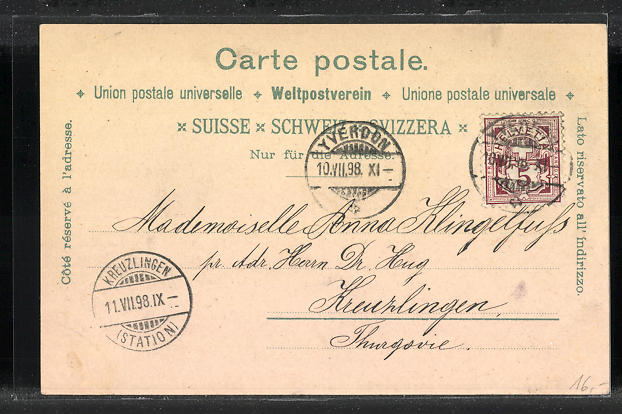 Carte postale.
Union postale universelle Weltpostverein Unione postale universale
SUISSE SCHWEIZ SVIZZERA
Nur für die Adresse.
Côté réservé à l'adresse.
Lato riservato all' indirizzo.
HELVETIA
5
YVERDON
10.VII.98. XI
Mademoiselle Anna Klingelfuss
pr. Adr. Herrn Dr. Hug
Kreuzlingen.
Thurgovie.
KREUZLINGEN
11.VII.98.IX
(STATION)
16,-